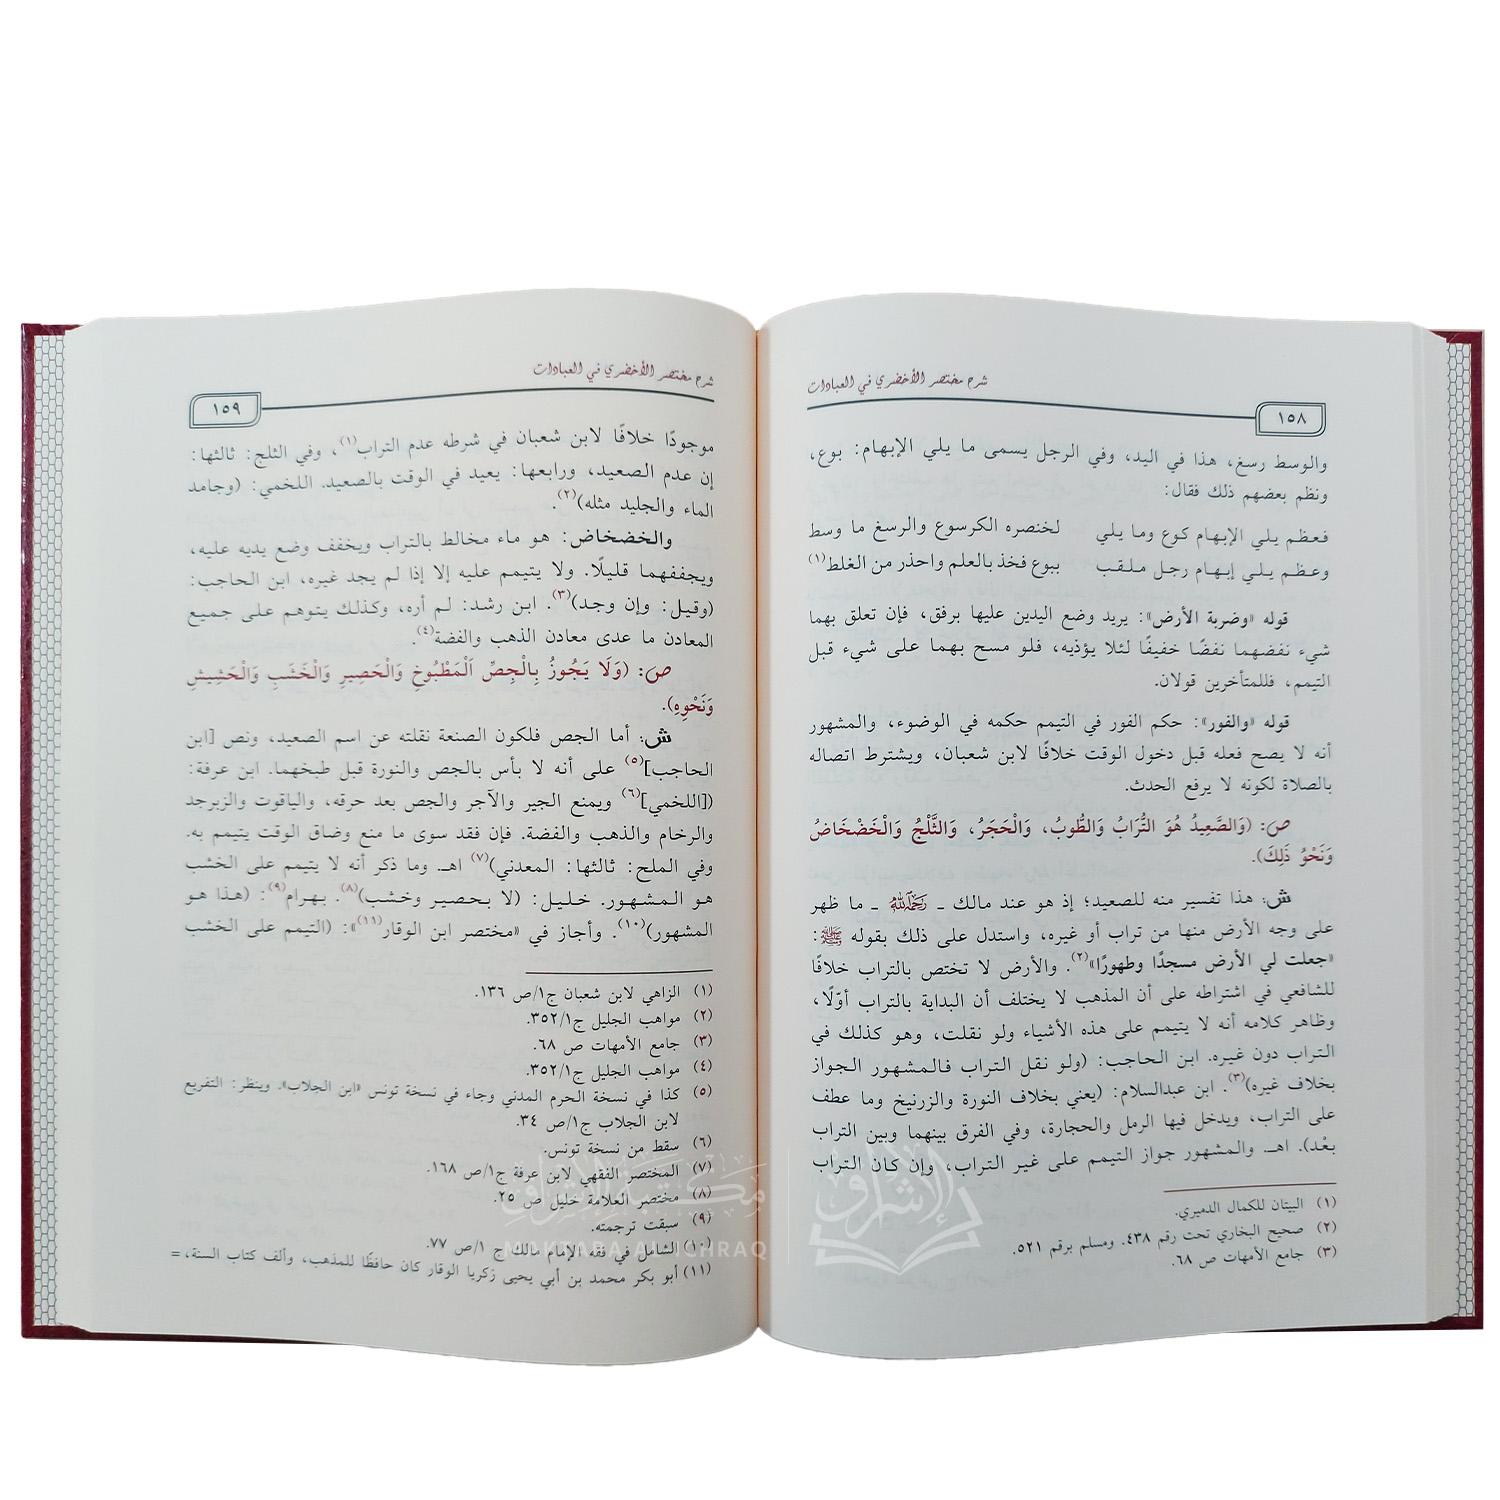 شرح مختصر الأخضري في العبادات
١٥٨
والوسط رسغ، هذا في اليد، وفي الرجل يسمى ما يلي الإبهام: بوع،
ونظم بعضهم ذلك فقال:
فعظم يلي الإبهام كوع وما يلي لخنصره الكرسوع والرسغ ما وسط
وعظم يلي إبهام رجل ملقب ببوع فخذ بالعلم واحذر من الغلط(١)
قوله «وضربة الأرض»: يريد وضع اليدين عليها برفق، فإن تعلق بهما
شيء نفضهما نفضًا خفيفًا لئلا يؤذيه، فلو مسح بهما على شيء قبل
التيمم، فللمتأخرين قولان.
قوله «والفور»: حكم الفور في التيمم حكمه في الوضوء، والمشهور
أنه لا يصح فعله قبل دخول الوقت خلافًا لابن شعبان، ويشترط اتصاله
بالصلاة لكونه لا يرفع الحدث.
ص: (وَالصَّعِيدُ هُوَ التُّرَابُ وَالطُّوبُ، وَالْحَجَرُ، وَالثَّلْجُ وَالْخَضْخَاضُ
وَنَحْوُ ذَلِكَ).
ش: هذا تفسير منه للصعيد؛ إذ هو عند مالك ـ رَحِمَهُ اللهُ ـ ما ظهر
على وجه الأرض منها من تراب أو غيره، واستدل على ذلك بقوله ﷺ:
«جعلت لي الأرض مسجدًا وطهورًا»(٢). والأرض لا تختص بالتراب خلافًا
للشافعي في اشتراطه على أن المذهب لا يختلف أن البداية بالتراب أوّلًا،
وظاهر كلامه أنه لا يتيمم على هذه الأشياء ولو نقلت، وهو كذلك في
التراب دون غيره. ابن الحاجب: (ولو نقل التراب فالمشهور الجواز
بخلاف غيره)(٣). ابن عبدالسلام: (يعني بخلاف النورة والزرنيخ وما عطف
على التراب، ويدخل فيها الرمل والحجارة، وفي الفرق بينهما وبين التراب
بعْد). اهـ. والمشهور جواز التيمم على غير التراب، وإن كان التراب
(١) البيتان للكمال الدميري.
(٢) صحيح البخاري تحت رقم ٤٣٨. ومسلم برقم ٥٢١.
(٣) جامع الأمهات ص ٦٨.
شرح مختصر الأخضري في العبادات
١٥٩
موجودًا خلافًا لابن شعبان في شرطه عدم التراب(١)، وفي الثلج: ثالثها:
إن عدم الصعيد، ورابعها: يعيد في الوقت بالصعيد. اللخمي: (وجامد
الماء والجليد مثله)(٢).
والخضخاض: هو ماء مخالط بالتراب ويخفف وضع يديه عليه،
ويجففهما قليلًا. ولا يتيمم عليه إلا إذا لم يجد غيره، ابن الحاجب:
(وقيل: وإن وجد)(٣). ابن رشد: لم أره، وكذلك يتوهم على جميع
المعادن ما عدى معادن الذهب والفضة(٤).
ص: (وَلَا يَجُوزُ بِالْجِصِّ الْمَطْبُوخِ وَالْحَصِيرِ وَالْخَشَبِ وَالْحَشِيشِ
وَنَحْوِهِ).
ش: أما الجص فلكون الصنعة نقلته عن اسم الصعيد، ونص [ابن
الحاجب](٥) على أنه لا بأس بالجص والنورة قبل طبخهما. ابن عرفة:
([اللخمي](٦) ويمنع الجير والآجر والجص بعد حرقه، والياقوت والزبرجد
والرخام والذهب والفضة. فإن فقد سوى ما منع وضاق الوقت يتيمم به.
وفي الملح: ثالثها: المعدني)(٧) اهـ. وما ذكر أنه لا يتيمم على الخشب
هو المشهور. خليل: (لا بحصير وخشب)(٨). بهرام(٩): (هذا هو
المشهور)(١٠). وأجاز في «مختصر ابن الوقار(١١)»: (التيمم على الخشب
(١) الزاهي لابن شعبان ج١/ص ١٣٦.
(٢) مواهب الجليل ج٣٥٢/١.
(٣) جامع الأمهات ص ٦٨.
(٤) مواهب الجليل ج٣٥٢/١.
(٥) كذا في نسخة الحرم المدني وجاء في نسخة تونس «ابن الجلاب». وينظر: التفريع
لابن الجلاب ج١/ص ٣٤.
(٦) سقط من نسخة تونس.
(٧) المختصر الفقهي لابن عرفة ج١/ص ١٦٨.
(٨) مختصر العلامة خليل ص ٢٥.
(٩) سبقت ترجمته.
(١٠) الشامل في فقه الإمام مالك ج ١/ص ٧٧.
(١١) أبو بكر محمد بن أبي يحيى زكريا الوقار كان حافظًا للمذهب، وألف كتاب السنة، =
مكتبة الإشراق
MAKTABA AL ICHRAQ
الإشراق